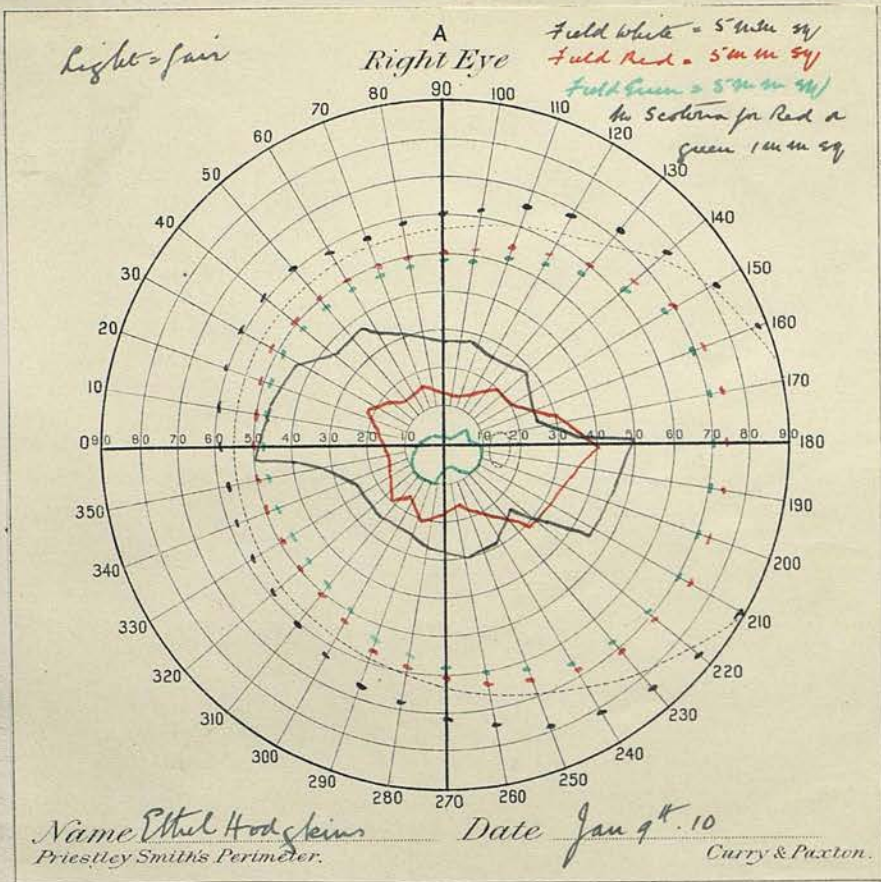 A
Right Eye
Light = fair
Field White = 5 mm sq
Field Red = 5 mm sq
Field Green = 5 mm sq
No Scotoma for Red or
green 1 mm sq
90
100
110
120
130
140
150
160
170
180
190
200
210
220
230
240
250
260
270
280
290
300
310
320
330
340
350
0
10
20
30
40
50
60
70
80
90 80 70 60 50 40 30 20 10 0 10 20 30 40 50 60 70 80 90
Name Ethel Hodgkins Date Jan 9th. 10
Priestley Smith's Perimeter. Curry & Paxton.